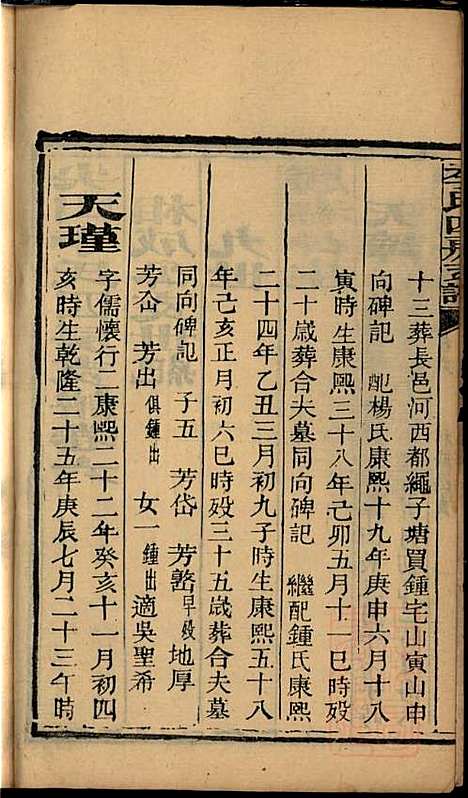 氏四房支譜
十三葬長邑河西都繩子塘買鍾宅山寅山申
向碑記 配楊氏康熙十九年庚申六月十八
寅時生康熙三十八年己卯五月十一巳時歿
二十歲葬合夫墓同向碑記 繼配鍾氏康熙
二十四年乙丑三月初九子時生康熙五十八
年己亥正月初六巳時歿三十五歲葬合夫墓
同向碑記 子五 芳岱 芳嶅早歿 地厚
芳㟏 芳出俱鍾出 女一鍾出適吳聖希
天瑾 字儒懷行二康熙二十二年癸亥十一月初四
亥時生乾隆二十五年庚辰七月二十三午時